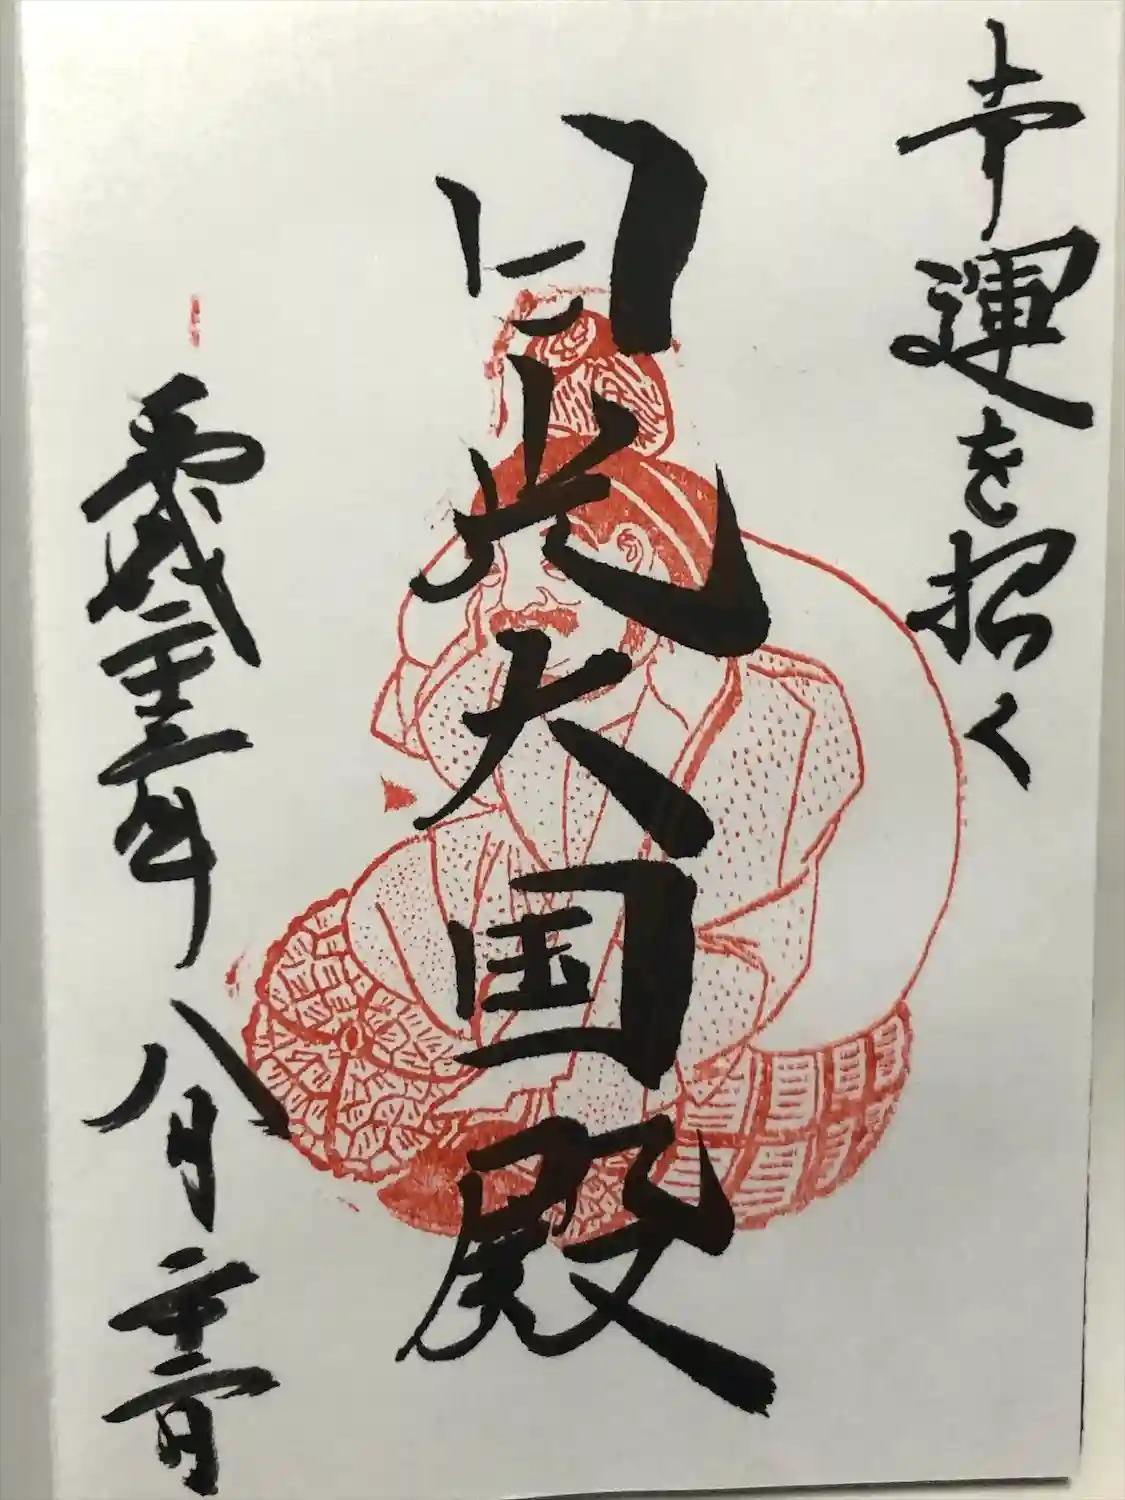 幸運を招く
日光大国殿
平成二十 年八月二十 日